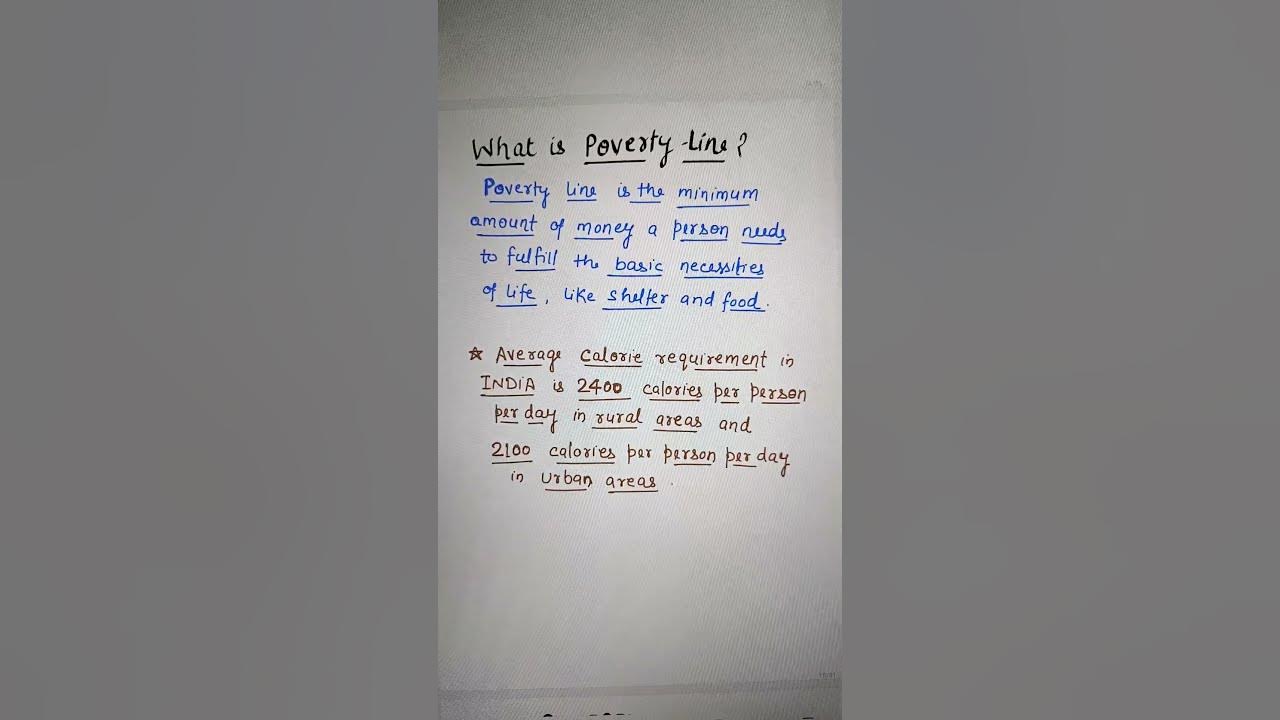 What is Poverty Line?
Poverty line is the minimum
amount of money a person needs
to fulfill the basic necessities
of life, like shelter and food.
☆ Average calorie requirement in
INDIA is 2400 calories per person
per day in rural areas and
2100 calories per person per day
in urban areas.